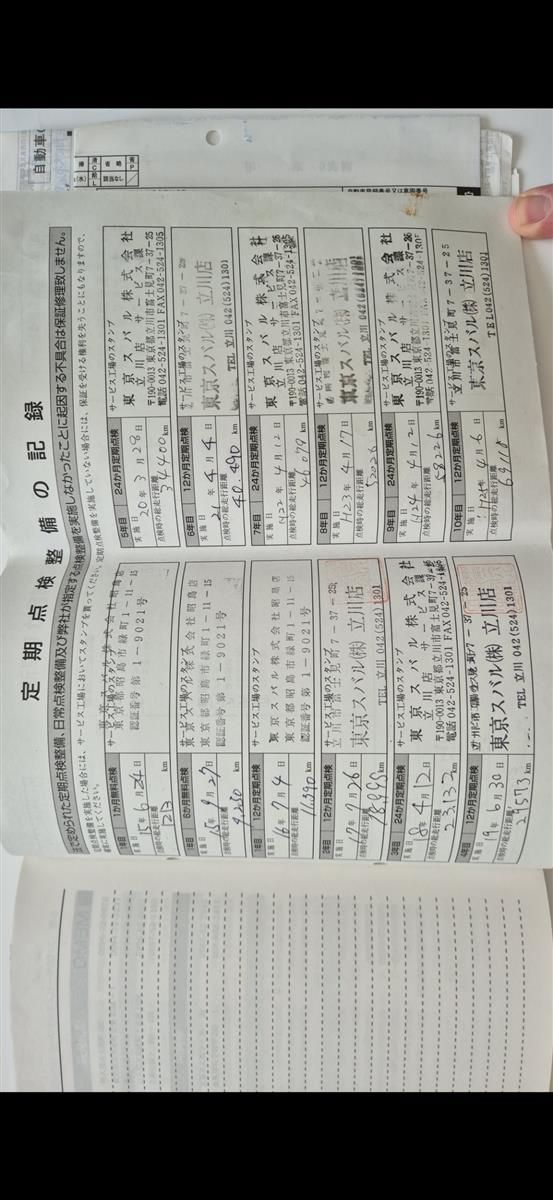 定期点検整備の記録
法で定められた定期点検整備、日常点検整備及び弊社が指定する点検整備を実施しなかったことに起因する不具合は保証修理致しません。
定期点検整備を実施した場合には、サービス工場においてスタンプを貰ってください。定期点検整備を実施していない場合には、保証を受ける権利を失うことにもなりますので、
確実に実施してください。
1年目 1か月無料点検
サービス工場のスタンプ
東京スバル株式会社昭島店
東京都昭島市緑町1-11-15
認証番号 第1-9021号
実施日 15年6月24日
点検時の総走行距離
1213 km
1年目 6か月無料点検
サービス工場のスタンプ
東京スバル株式会社昭島店
東京都昭島市緑町1-11-15
認証番号 第1-9021号
実施日 15年9月27日
点検時の総走行距離
km
1年目 12か月定期点検
サービス工場のスタンプ
東京スバル株式会社昭島店
東京都昭島市緑町1-11-15
認証番号 第1-9021号
実施日 16年7月4日
点検時の総走行距離
11,390 km
2年目 12か月定期点検
サービス工場のスタンプ
立川市富士見町7-37-25
東京スバル(株) 立川店
TEL 立川 042(524)1301
実施日 17年7月26日
点検時の総走行距離
18,999 km
3年目 24か月定期点検
サービス工場のスタンプ
東京スバル株式会社
立川店 サービス課
〒190-0013 東京都立川市富士見町7-37-25
電話 042-524-1301 FAX 042-524-1305
実施日 8年4月12日
点検時の総走行距離
23,132 km
4年目 12か月定期点検
東京スバル(株) 立川店
TEL 立川 042(524)1301
実施日 19年6月30日
点検時の総走行距離
29,573 km
5年目 24か月定期点検
サービス工場のスタンプ
東京スバル株式会社
立川店 サービス課
〒190-0013 東京都立川市富士見町7-37-25
電話 042-524-1301 FAX 042-524-1305
実施日 20年3月28日
点検時の総走行距離
34400 km
6年目 12か月定期点検
サービス工場のスタンプ
東京スバル(株) 立川店
TEL 立川 042(524)1301
実施日 21年4月4日
点検時の総走行距離
40,490 km
7年目 24か月定期点検
サービス工場のスタンプ
東京スバル株式会社
立川店 サービス課
〒190-0013 東京都立川市富士見町7-37-25
電話 042-524-1301 FAX 042-524-1305
実施日 22年4月12日
点検時の総走行距離
46079 km
8年目 12か月定期点検
サービス工場のスタンプ
東京スバル(株) 立川店
TEL 立川 042(524)1301
実施日 H23年4月17日
点検時の総走行距離
km
9年目 24か月定期点検
サービス工場のスタンプ
東京スバル株式会社
立川店 サービス課
〒190-0013 東京都立川市富士見町7-37-25
電話 042-524-1301 FAX 042-524-1305
実施日 H24年4月12日
点検時の総走行距離
58226 km
10年目 12か月定期点検
サービス工場のスタンプ
立川市富士見町7-37-25
東京スバル(株) 立川店
TEL 042(524)1301
実施日 H25年4月6日
点検時の総走行距離
km
自動車
自動車登録番号又は車両番号
省略
該当なし